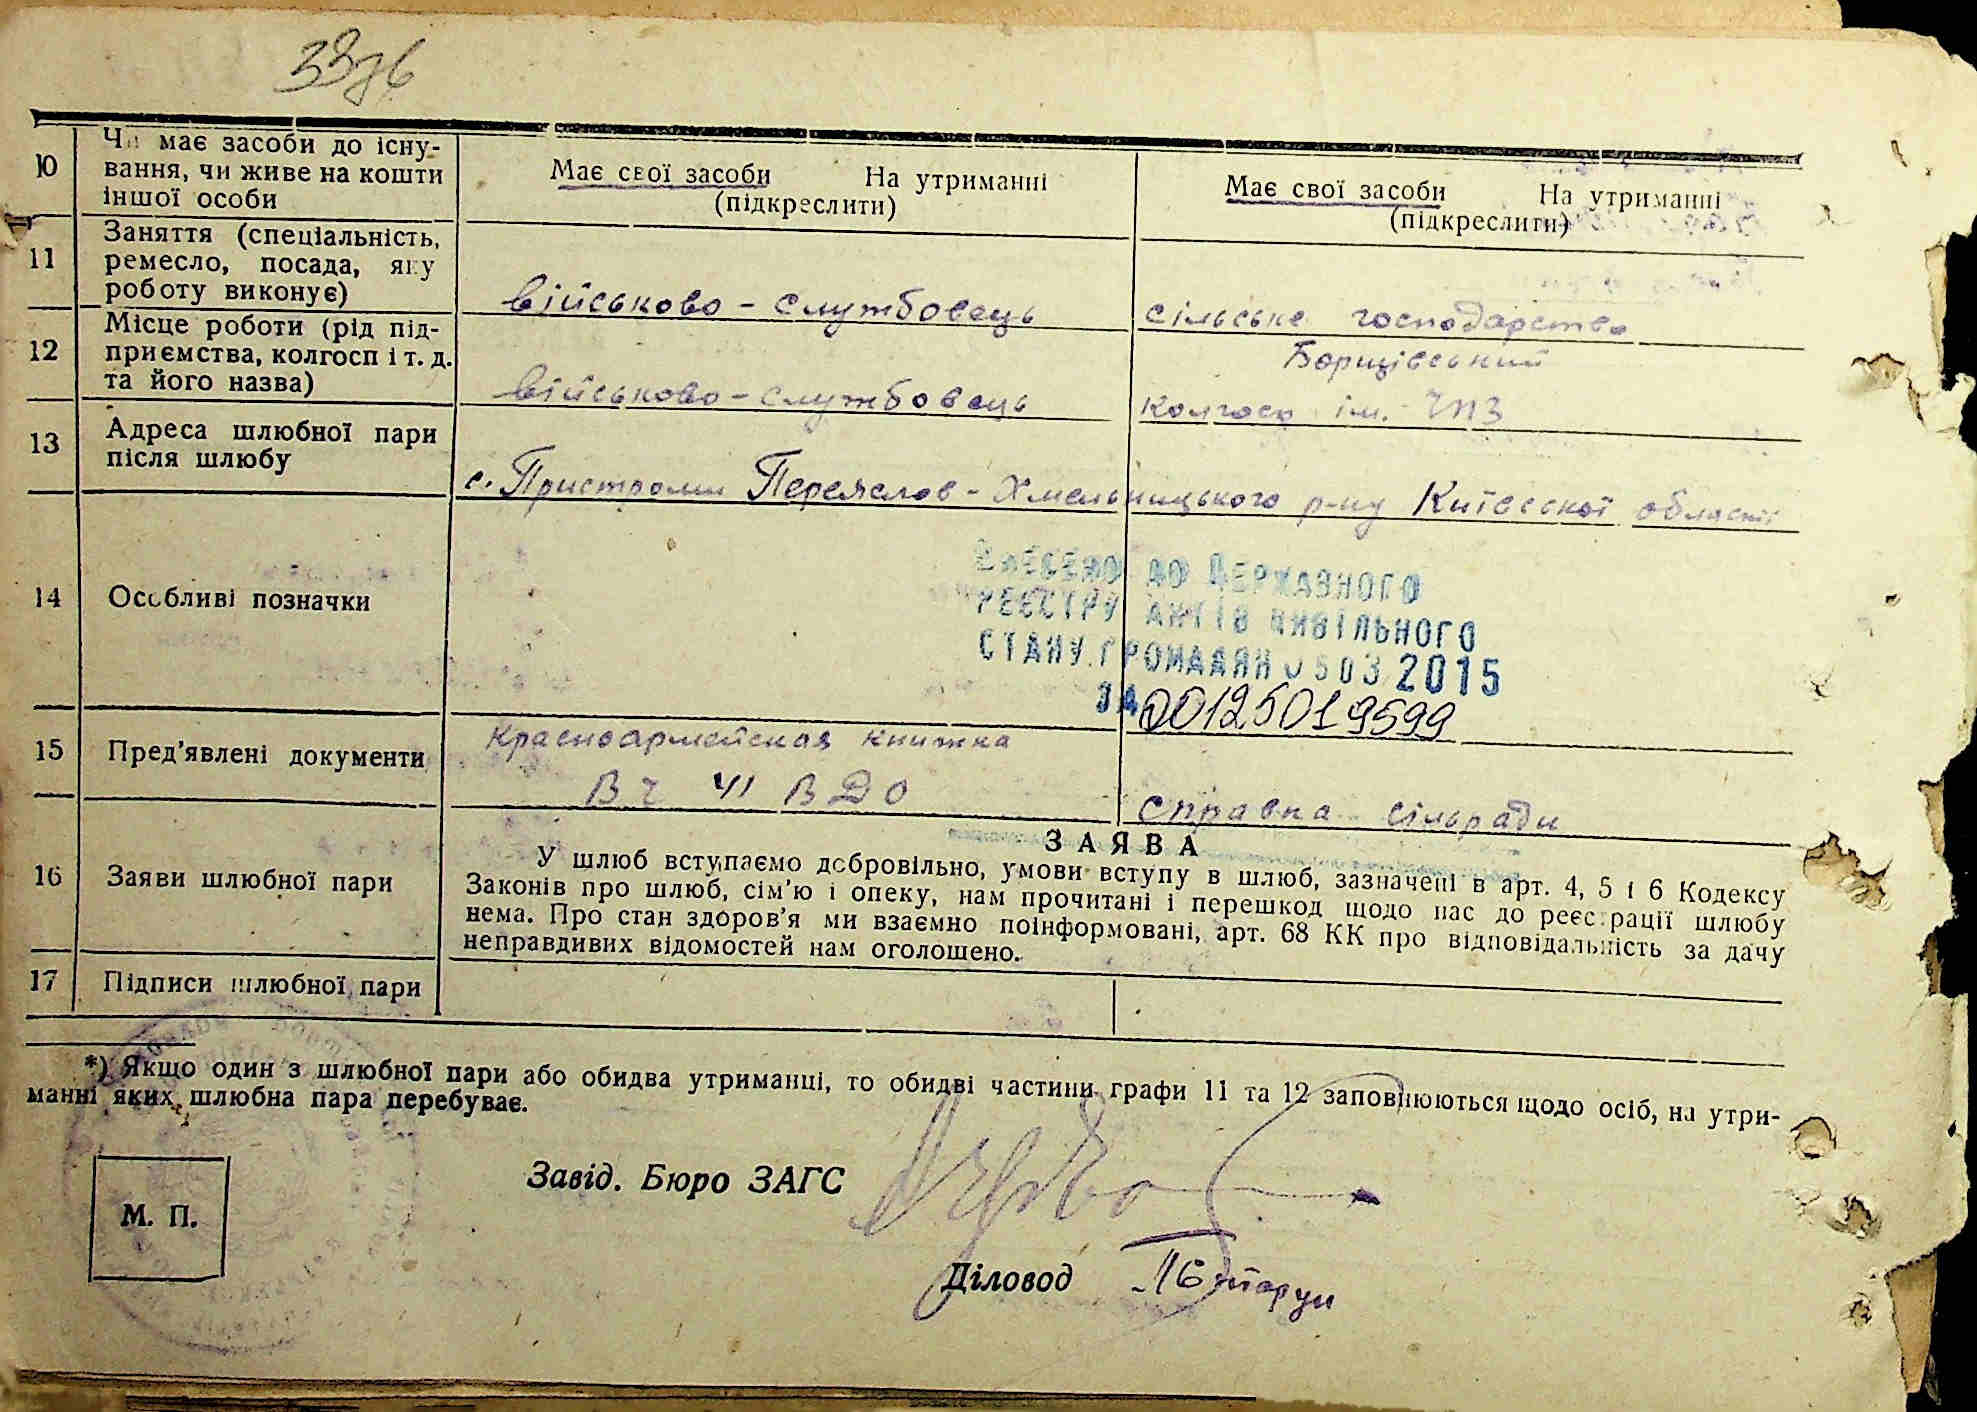 10
Чи має засоби до існу-
вання, чи живе на кошти
іншої особи
Має свої засоби На утриманні
(підкреслити)
Має свої засоби На утриманні
(підкреслити)
11
Заняття (спеціальність,
ремесло, посада, яку
роботу виконує)
військово - службовець
сільське господарство
12
Місце роботи (рід під-
приємства, колгосп і т. д.
та його назва)
військово - службовець
Борщівський
колгосп ім. ЧПЗ
13
Адреса шлюбної пари
після шлюбу
с. Пристроми Переяслов - Хмельницького р-ну Київскої області
14
Особливі позначки
ВНЕСЕНО ДО ДЕРЖАВНОГО
РЕЄСТРУ АКТІВ ЦИВІЛЬНОГО
СТАНУ ГРОМАДЯН 0503 2015
ЗА 00125019599
15
Пред’явлені документи
Красноармейская книжка
В ч 41 В Д О
справка сільради
16
Заяви шлюбної пари
ЗАЯВА
У шлюб вступаємо добровільно, умови вступу в шлюб, зазначені в арт. 4, 5 і 6 Кодексу
Законів про шлюб, сім’ю і опеку, нам прочитані і перешкод щодо нас до реєстрації шлюбу
нема. Про стан здоров’я ми взаємно поінформовані, арт. 68 КК про відповідальність за дачу
неправдивих відомостей нам оголошено.
17
Підписи шлюбної пари
*) Якщо один з шлюбної пари або обидва утриманці, то обидві частини графи 11 та 12 заповнюються щодо осіб, на утри-
манні яких шлюбна пара перебуває.
Завід. Бюро ЗАГС
М. П.
Діловод